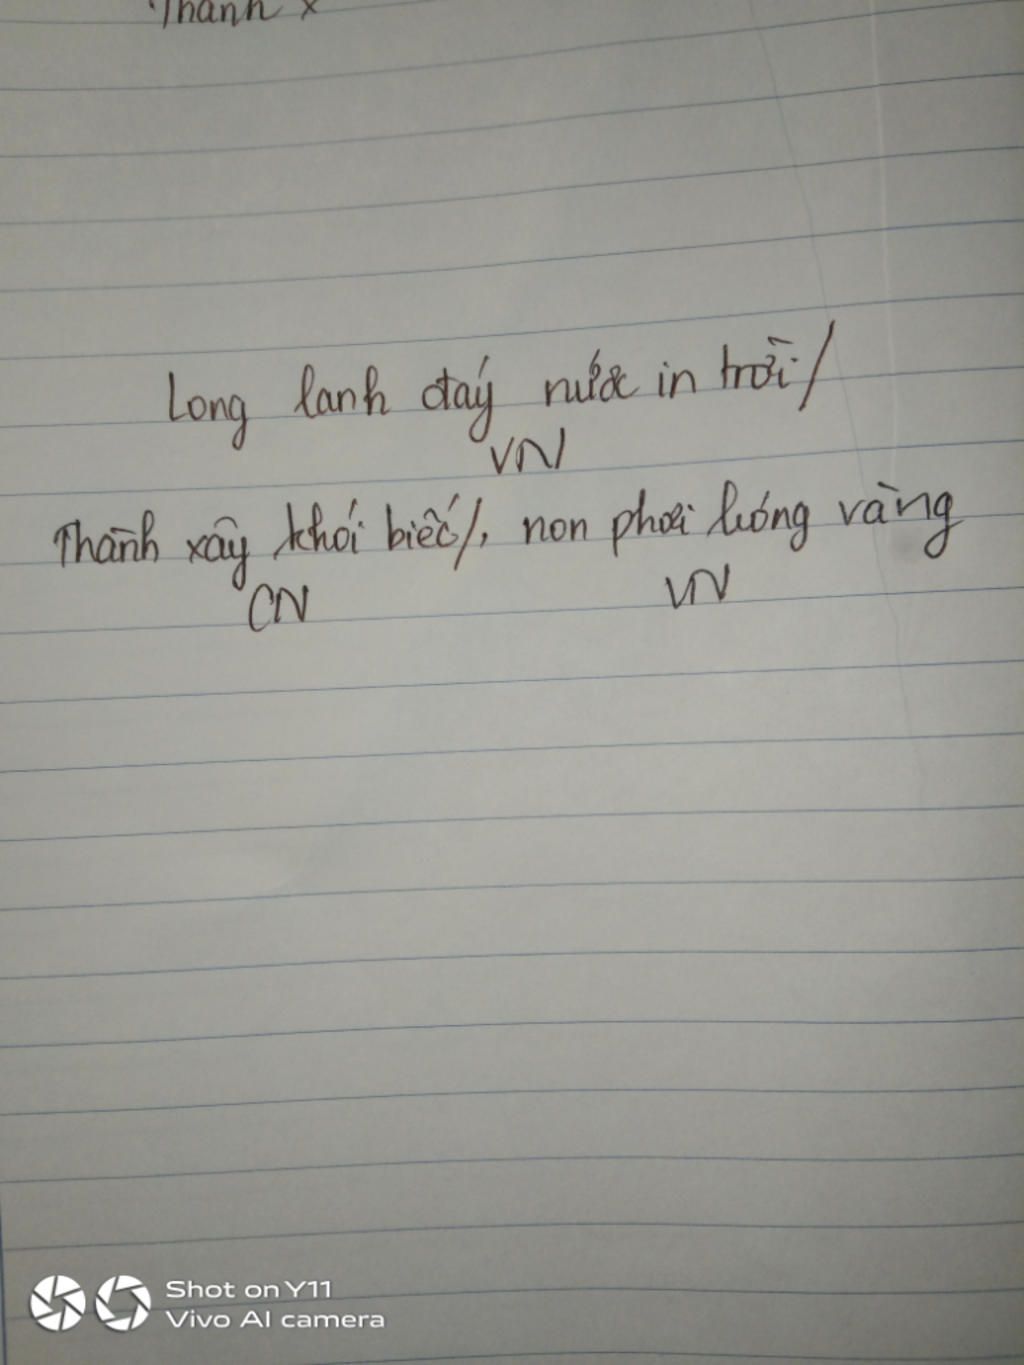 Thành x
Long lanh đáy nước in trời/
VN
Thành xây khói biếc/, non phơi bóng vàng
CN VN
Shot on Y11
Vivo AI camera